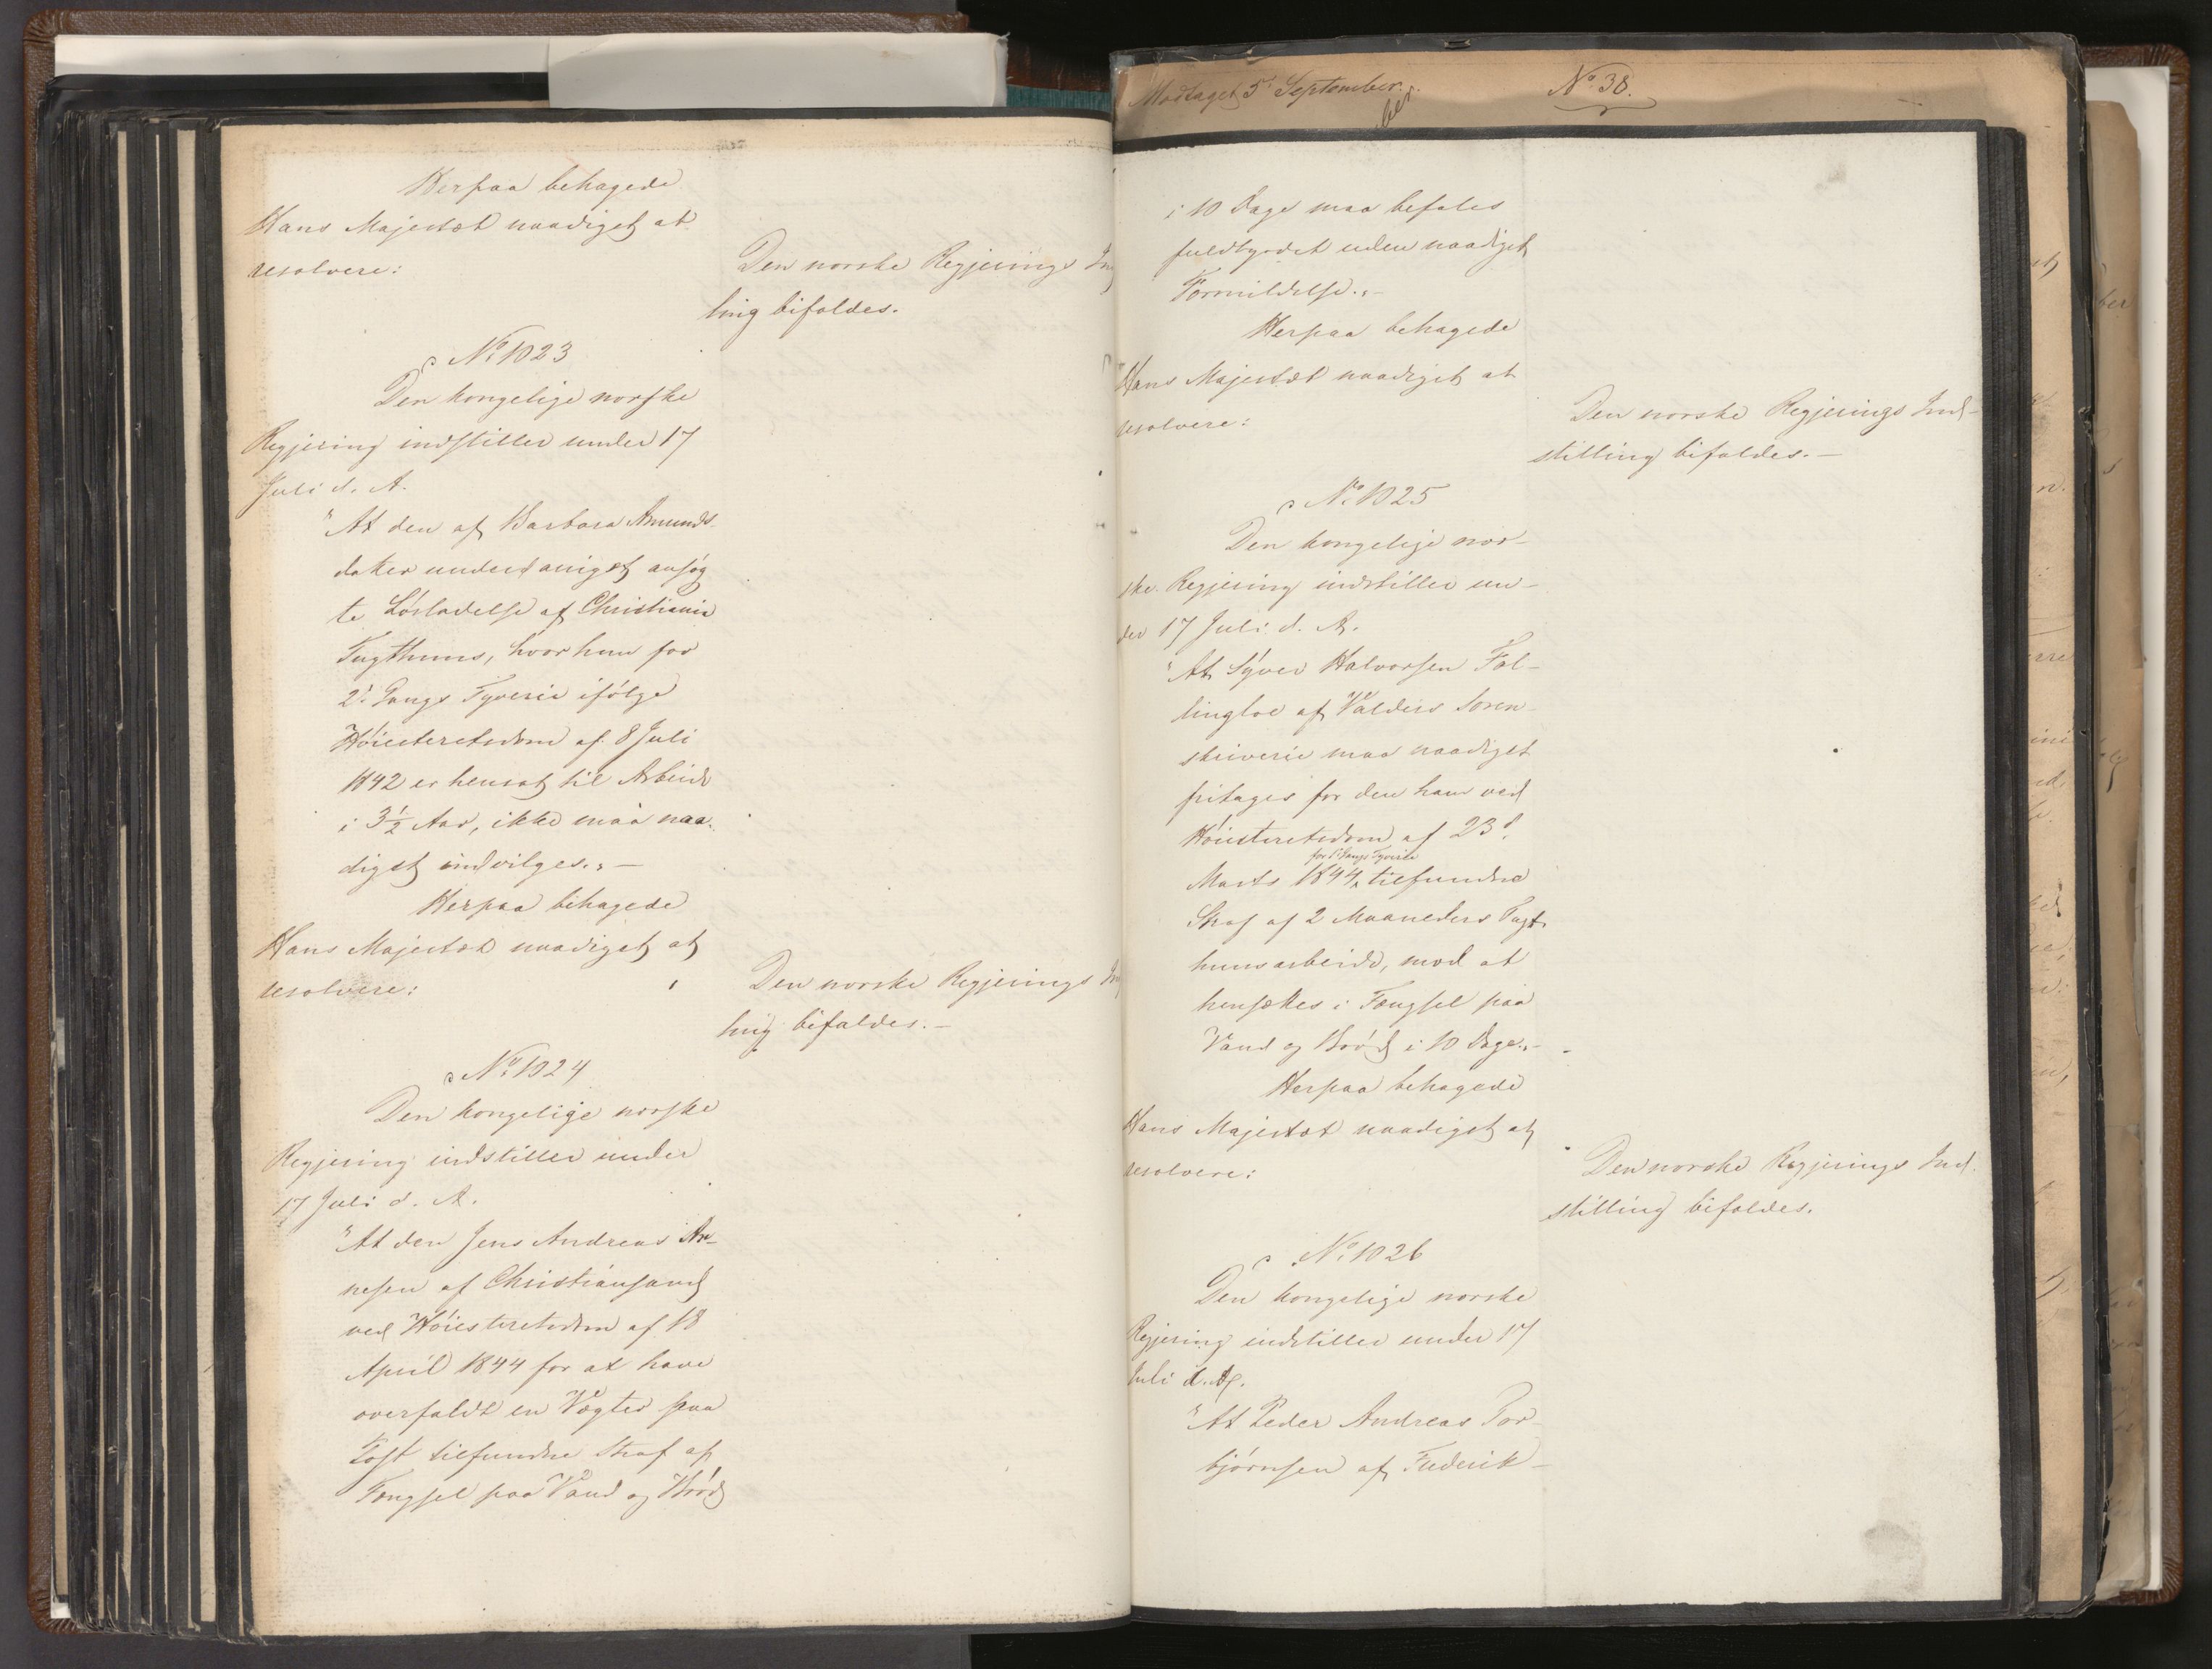 Herpaa behagede
Hans Majestæt naadigst at
resolvere:
Den norske Regjerings In
ling bifaldes.
No 1023
Den kongelige norske
Regjering indstiller under 17
Juli d. A.
"At den af Barbara Amunds-
datter underdanigst ansøg
te Løsladelse af Christiania
Tugthuus, hvor hun for
2den Gangs Tyverie ifølge
Høiesteretsdom af 8 Juli
1842 er hensat til Arbeide
i 3½ Aar, ikke maa naa-
digst indvilges." —
Herpaa behagede
Hans Majestæt naadigst at
resolvere:
Den norske Regjerings In
ling bifaldes. —
No 1024
Den kongelige norske
Regjering indstiller under
17 Juli d. A.
"At den Jens Andreas Ar-
nesen af Christiansand
ved Høiesteretsdom af 18
April 1844 for at have
overfaldt en Vægter paa
Post tilfundne Straf af
Fængsel paa Vand og Brød
Modtaget 5te September.
ber
No 38.
i 10 Dage maa befales
fuldbyrdet uden naadigst
Formildelse." —
Herpaa behagede
Hans Majestæt naadigst at
resolvere:
Den norske Regjerings Ind-
stilling bifaldes. —
No 1025
Den kongelige nor-
ske Regjering indstiller un-
der 17 Juli d. A.
"At Syver Halvorsen Fol-
lingloe af Valders Soren-
skriverie maa naadigst
fritages for den ham ved
Høiesteretsdom af 23d
for 1 Gangs Tyverie
Marts 1844 tilfundne
Straf af 2 Maaneders Tugt-
huusarbeide, mod at
hensættes i Fængsel paa
Vand og Brød i 10 Dage." —
Herpaa behagede
Hans Majestæt naadigst at
resolvere:
Den norske Regjerings Ind-
stilling bifaldes.
No 1026
Den kongelige norske
Regjering indstiller under 17
Juli d. A.
"At Peder Andreas Tor-
bjørnsen af Frederik-